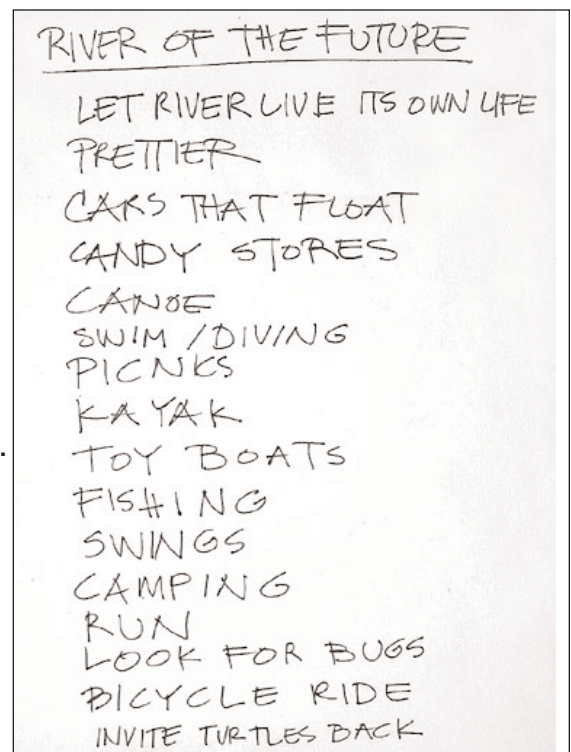 RIVER OF THE FUTURE
LET RIVER LIVE ITS OWN LIFE
PRETTIER
CARS THAT FLOAT
CANDY STORES
CANOE
SWIM / DIVING
PICNKS
KAYAK
TOY BOATS
FISHING
SWINGS
CAMPING
RUN
LOOK FOR BUGS
BICYCLE RIDE
INVITE TURTLES BACK